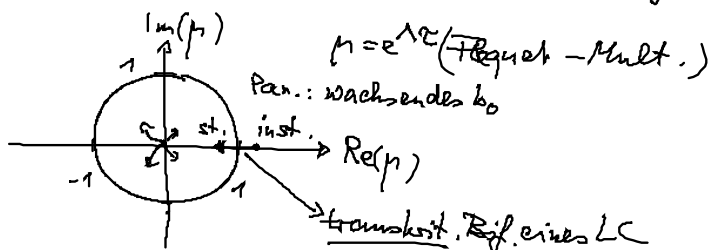 Im(μ)
μ = e^Λτ (Floquet - Mult.)
1
Par.: wachsendes b₀
st. inst.
Re(μ)
-1 1
transkrit. Bif. eines LC